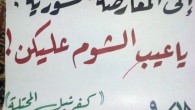 إلى المعارضة السورية!
يا عيب الشوم عليكن!
(كفرنبل المحتلة)